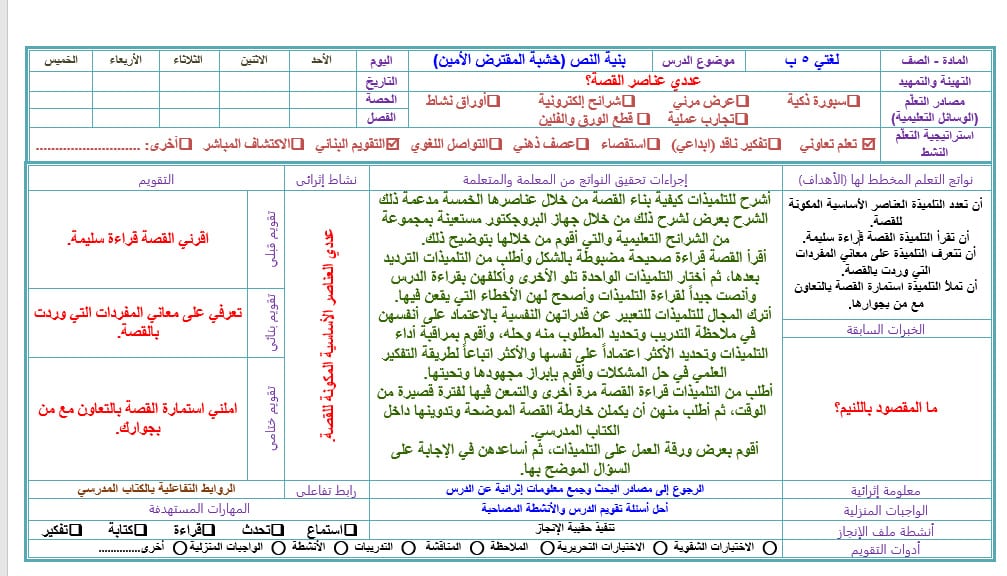 المادة - الصف لغتي ٥ ب موضوع الدرس بنية النص (خشبة المقترض الأمين) اليوم الأحد الاثنين الثلاثاء الأربعاء الخميس
التهيئة والتمهيد عددي عناصر القصة؟ التاريخ
مصادر التعلم (الوسائل التعليمية) سبورة ذكية عرض مرئي شرائح إلكترونية أوراق نشاط الحصة
تجارب عملية قطع الورق والفلين الفصل
استراتيجية التعلم النشط تعلم تعاوني تفكير ناقد (ابداعي) استقصاء عصف ذهني التواصل اللغوي التقويم البنائي الاكتشاف المباشر أخرى: ...........................
نواتج التعلم المخطط لها (الأهداف) إجراءات تحقيق النواتج من المعلمة والمتعلمة نشاط إثرائى التقويم
أن تعدد التلميذة العناصر الأساسية المكونة
للقصة.
أن تقرأ التلميذة القصة قراءة سليمة.
أن تتعرف التلميذة على معاني المفردات
التي وردت بالقصة.
أن تملأ التلميذة استمارة القصة بالتعاون
مع من بجوارها.
الخبرات السابقة
ما المقصود باللئيم؟
أشرح للتلميذات كيفية بناء القصة من خلال عناصرها الخمسة مدعمة ذلك
الشرح بعرض لشرح ذلك من خلال جهاز البروجكتور مستعينة بمجموعة
من الشرائح التعليمية والتي أقوم من خلالها بتوضيح ذلك.
أقرأ القصة قراءة صحيحة مضبوطة بالشكل وأطلب من التلميذات الترديد
بعدها، ثم أختار التلميذات الواحدة تلو الأخرى وأكلفهن بقراءة الدرس
وأنصت جيداً لقراءة التلميذات وأصحح لهن الأخطاء التي يقعن فيها.
أترك المجال للتلميذات للتعبير عن قدراتهن النفسية بالاعتماد على أنفسهن
في ملاحظة التدريب وتحديد المطلوب منه وحله، وأقوم بمراقبة أداء
التلميذات وتحديد الأكثر اعتماداً على نفسها والأكثر اتباعاً لطريقة التفكير
العلمي في حل المشكلات وأقوم بإبراز مجهودها وتحيتها.
أطلب من التلميذات قراءة القصة مرة أخرى والتمعن فيها لفترة قصيرة من
الوقت، ثم أطلب منهن أن يكملن خارطة القصة الموضحة وتدوينها داخل
الكتاب المدرسي.
أقوم بعرض ورقة العمل على التلميذات، ثم أساعدهن في الإجابة على
السؤال الموضح بها.
عددي العناصر الأساسية المكونة للقصة.
تقويم قبلي
اقرئي القصة قراءة سليمة.
تقويم بنائي
تعرفي على معاني المفردات التي وردت
بالقصة.
تقويم ختامي
املئي استمارة القصة بالتعاون مع من
بجوارك.
معلومة إثرائية الرجوع إلى مصادر البحث وجمع معلومات إثرائية عن الدرس رابط تفاعلى الروابط التفاعلية بالكتاب المدرسي
الواجبات المنزلية أحل أسئلة تقويم الدرس والأنشطة المصاحبة المهارات المستهدفة
أنشطة ملف الإنجاز تنفيذ حقيبة الإنجاز استماع تحدث قراءة كتابة تفكير
أدوات التقويم الاختبارات الشفوية الاختبارات التحريرية الملاحظة المناقشة التدريبات الأنشطة الواجبات المنزلية أخرى..............